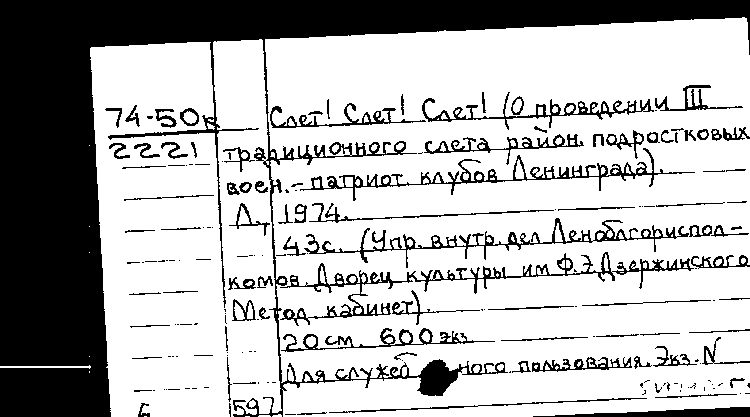 74-50в Слет! Слет! Слет! (О проведении III
2221 традиционного слета район. подростковых
воен.-патриот. клубов Ленинграда).
Л., 1974.
43с. (Упр. внутр. дел Леноблгориспол-
комов. Дворец культуры им Ф.Э Дзержинского
Метод. кабинет).
20 см. 600 экз
Для служебного пользования. Экз. N
597